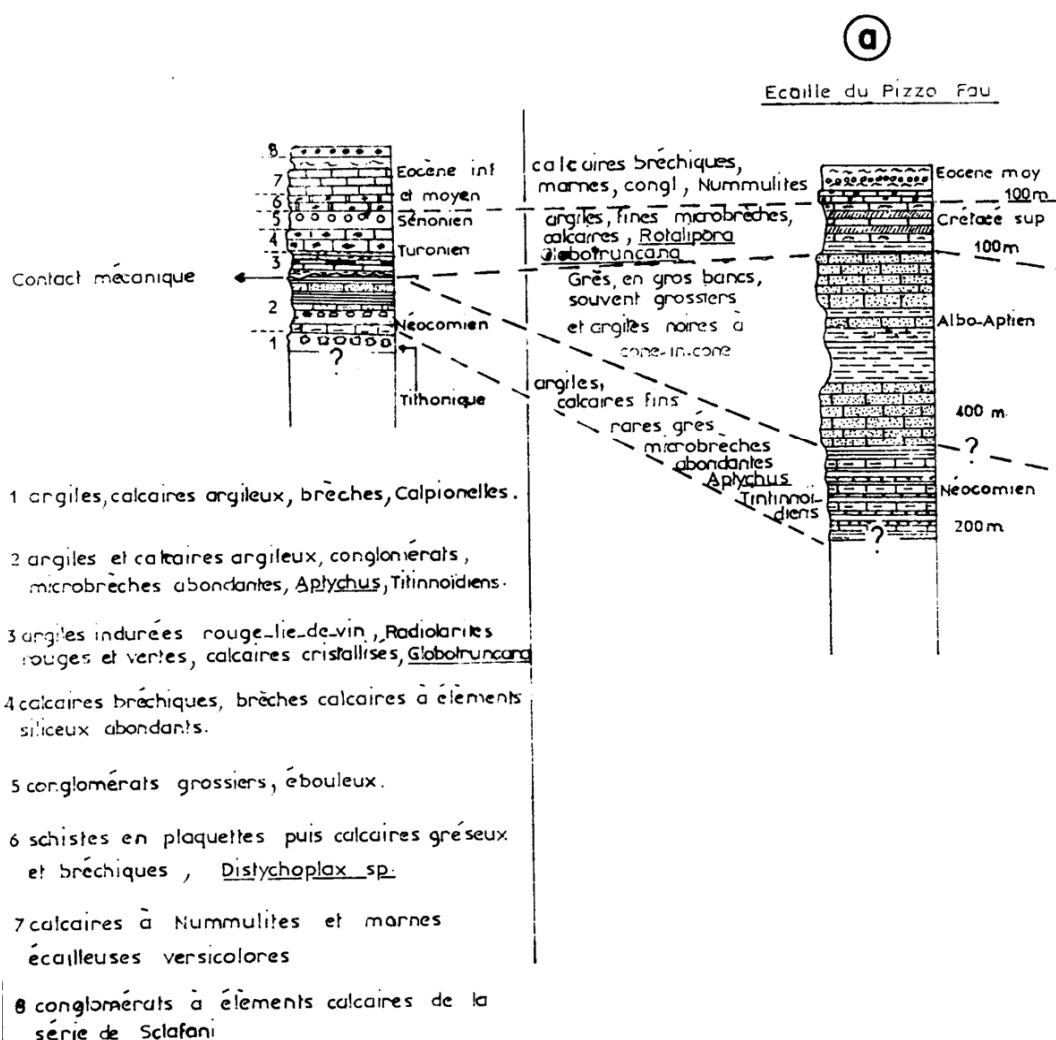 a
Ecaille du Pizzo Fau
8
7
6
5
4
3
2
1
?
Eocène inf
et moyen
Sénonien
Turonien
Néocomien
Tithonique
Contact mécanique
calcaires bréchiques,
marnes, congl, Nummulites
argiles, fines microbrèches,
calcaires, Rotalipora
Globotruncana
Grès, en gros bancs,
souvent grossiers
et argiles noires à
cone-in-cone
argiles,
calcaires fins
rares grés
microbrèches
abondantes
Aptychus
Tintinnoï-
diens
Eocene moy
100m
Crétacé sup
100m
Albo-Aptien
400 m.
?
Néocomien
200m
?
1 argiles, calcaires argileux, brèches, Calpionelles.
2 argiles et calcaires argileux, conglomérats,
microbrèches abondantes, Aptychus, Titinnoïdiens.
3 argiles indurées rouge-lie-de-vin, Radiolarites
rouges et vertes, calcaires cristallisés, Globotruncana
4 calcaires bréchiques, brèches calcaires à élèments
siliceux abondants.
5 conglomérats grossiers, ébouleux.
6 schistes en plaquettes puis calcaires gréseux
et bréchiques, Distychoplax sp.
7 calcaires à Nummulites et marnes
écailleuses versicolores
8 conglomérats à élèments calcaires de la
série de Sclafani